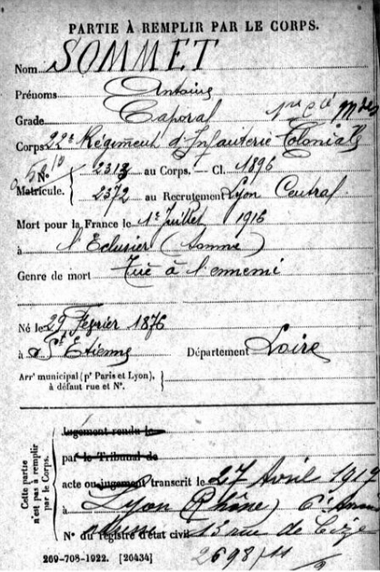 PARTIE À REMPLIR PAR LE CORPS.
Nom SOMMET
Prénoms Antoine
Grade Caporal 1re Cie Mdes
Corps 22e Régiment d'Infanterie Coloniale
N° 2313 au Corps. — Cl. 1896
Matricule. 2372 au Recrutement Lyon Central
Mort pour la France le 1er Juillet 1916
à l'Eclusier (Somme)
Genre de mort Tué à l'ennemi
Né le 29 Février 1876
à St Etienne Département Loire
Arrt municipal (pr Paris et Lyon),
à défaut rue et N°.
Cette partie
n'est pas à remplir
par le Corps.
Jugement rendu le
par le Tribunal de
acte ou jugement transcrit le 27 Avril 1917
à Lyon (Rhône) 6e
N° du registre d'état civil 15 rue de
2698/11
269-708-1922. [26434]